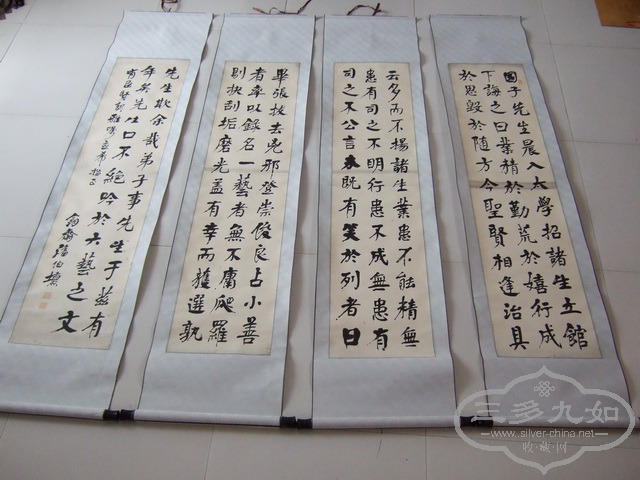 國子先生晨入太學招諸生立館
下誨之曰業精於勤荒於嬉行成
於思毀於随方今聖賢相逢治具
云多而不揚諸生業患不能精無
患有司之不明行患不成無患有
司之不公言未既有笑於列者曰
畢張拔去兇邪登崇俊良占小善
者率以錄名一藝者無不庸爬羅
剔抉刮垢磨光蓋有幸而獲選孰
先生欺余哉弟子事先生于茲有
年矣先生口不絕吟於六藝之文
三多九如
www.silver-china.net
收·藏·网